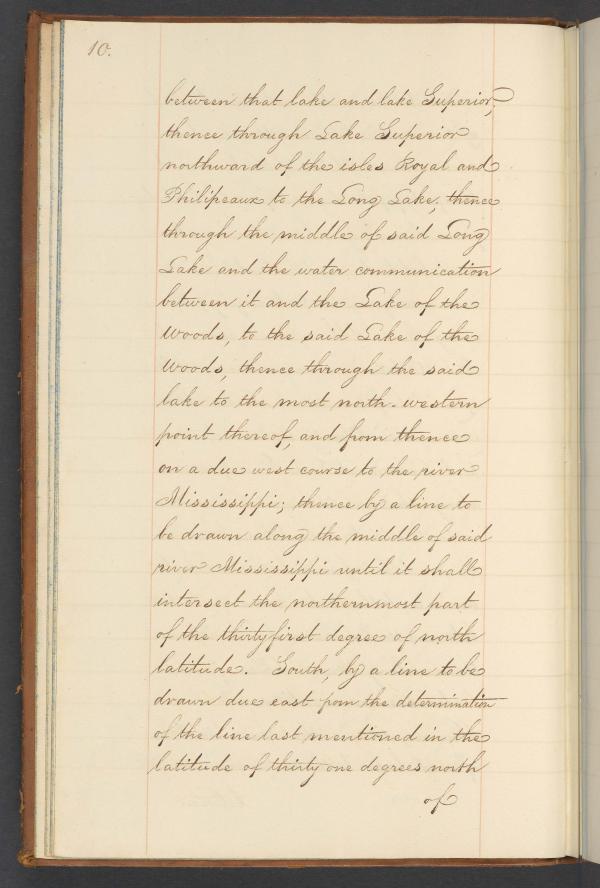 10.
between that lake and lake Superior;
thence through Lake Superior
northward of the isles Royal and
Philipeaux to the Long Lake; thence
through the middle of said Long
Lake and the water communication
between it and the Lake of the
Woods, to the said Lake of the
Woods, thence through the said
lake to the most north-western
point thereof, and from thence
on a due west course to the river
Mississippi; thence by a line to
be drawn along the middle of said
river Mississippi until it shall
intersect the northernmost part
of the thirty first degree of north
latitude. South, by a line to be
drawn due east from the determination
of the line last mentioned in the
latitude of thirty one degrees north
of